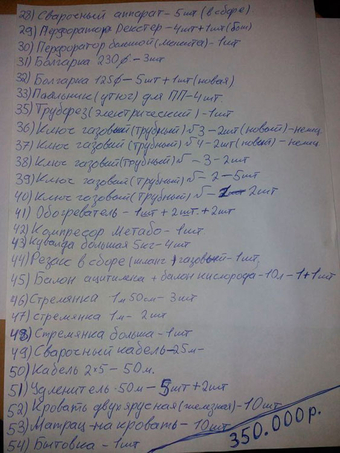 28) Сварочный аппарат - 5шт (в сборе)
29) Перфоратор Декстер - 4шт + 1шт (бит)
30) Перфоратор большой (макита) - 1шт
31) Болгарка 230ф - 3шт
32) Болгарка 125ф - 5шт + 1шт (новая)
33) Паяльник (утюг) для ПП - 4шт.
35) Труборез (электрический) - 1шт
36) Ключ газовый (трубный) √3 - 2шт (новый) - немец
37) Ключ газовый (трубный) √4 - 2шт (новый) - немец
38) Ключ газовый (трубный) √ - 3 - 2шт
39) Ключ газовый (трубный) √ - 2 - 5шт
40) Ключ газовый (трубный) √ - 2шт
41) Обогреватель - 1шт + 2шт. + 2шт
42) Компресор метабо - 1шт
43) Кувалда большая 5кг - 4шт
44) Резак в сборе (шланг) газовый - 1шт.
45) Балон ацитилна + балон кислорода - 10л - 1 + 1шт
46) Стремянка 1м 50см - 3шт
47) стремянка 1м - 2шт
48) Стремянка больша - 1шт
49) Сварочный кабель - 25м
50) Кабель 2×5 - 50м.
51) Удленитель - 50м - 5шт + 2шт
52) Кровать двухярусная (железная) - 10шт
53) Матрац на кровать - 10шт
54) Бытовка - 1шт
350.000р.